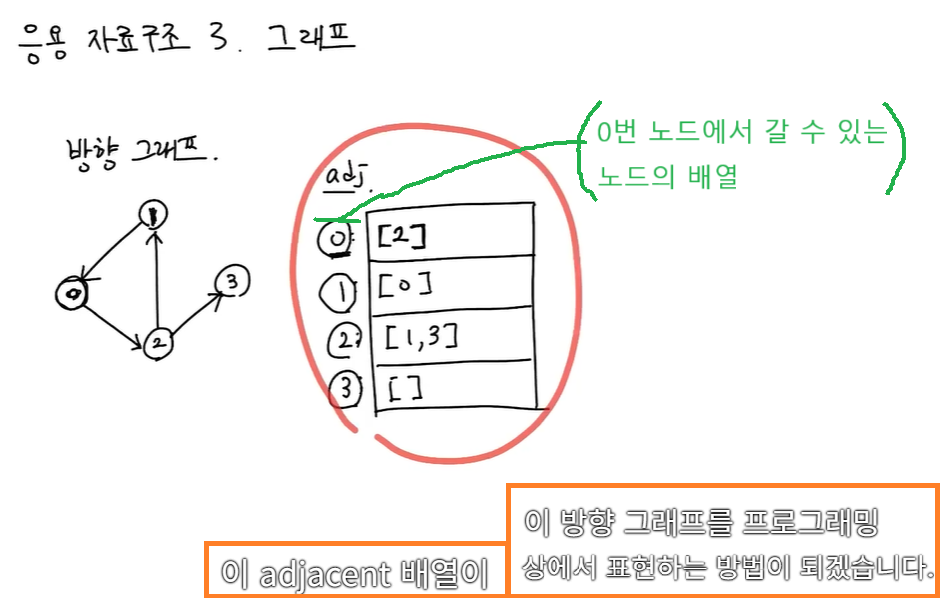 응용 자료구조 3. 그래프
방향 그래프.
1
0
2
3
adj.
0: [2]
1: [0]
2: [1,3]
3: []
0번 노드에서 갈 수 있는
노드의 배열
이 adjacent 배열이
이 방향 그래프를 프로그래밍
상에서 표현하는 방법이 되겠습니다.